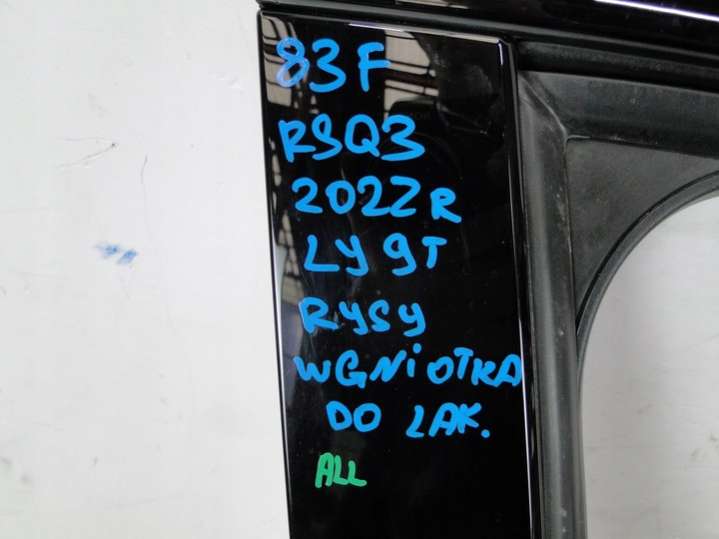 83F
RSQ3
2022R
LY9T
RYSY
WGNiOTKA
DO LAK.
ALL